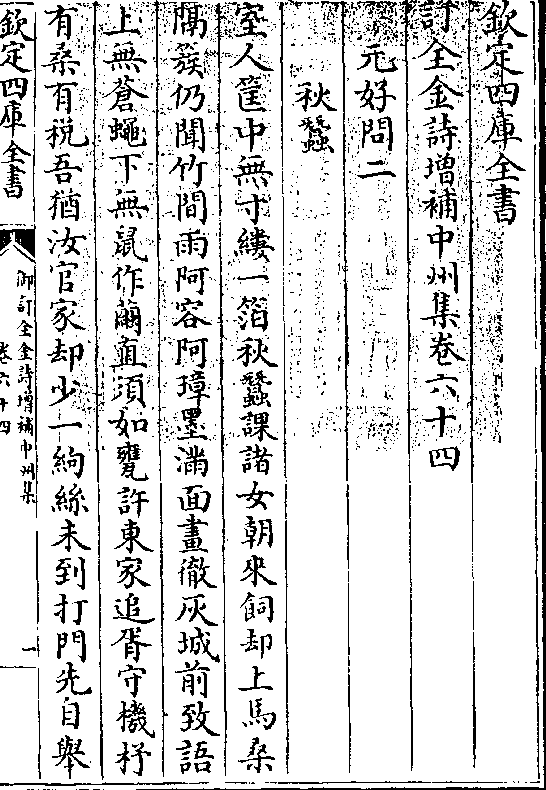 欽定四庫全書
訂全金詩增補中州集卷六十四
元好問二
秋蠶
室人筐中無寸縷一箔秋蠶課諸女朝來飼却上馬桑
隔簇仍聞竹間雨阿容阿璋墨滿面畫徹灰城前致語
上無蒼蠅下無鼠作繭直須如甕許東家追胥守機杼
有桑有稅吾猶汝官家却少一絢絲未到打門先自舉
欽定四庫全書
御訂全金詩增補中州集
卷六十四
一